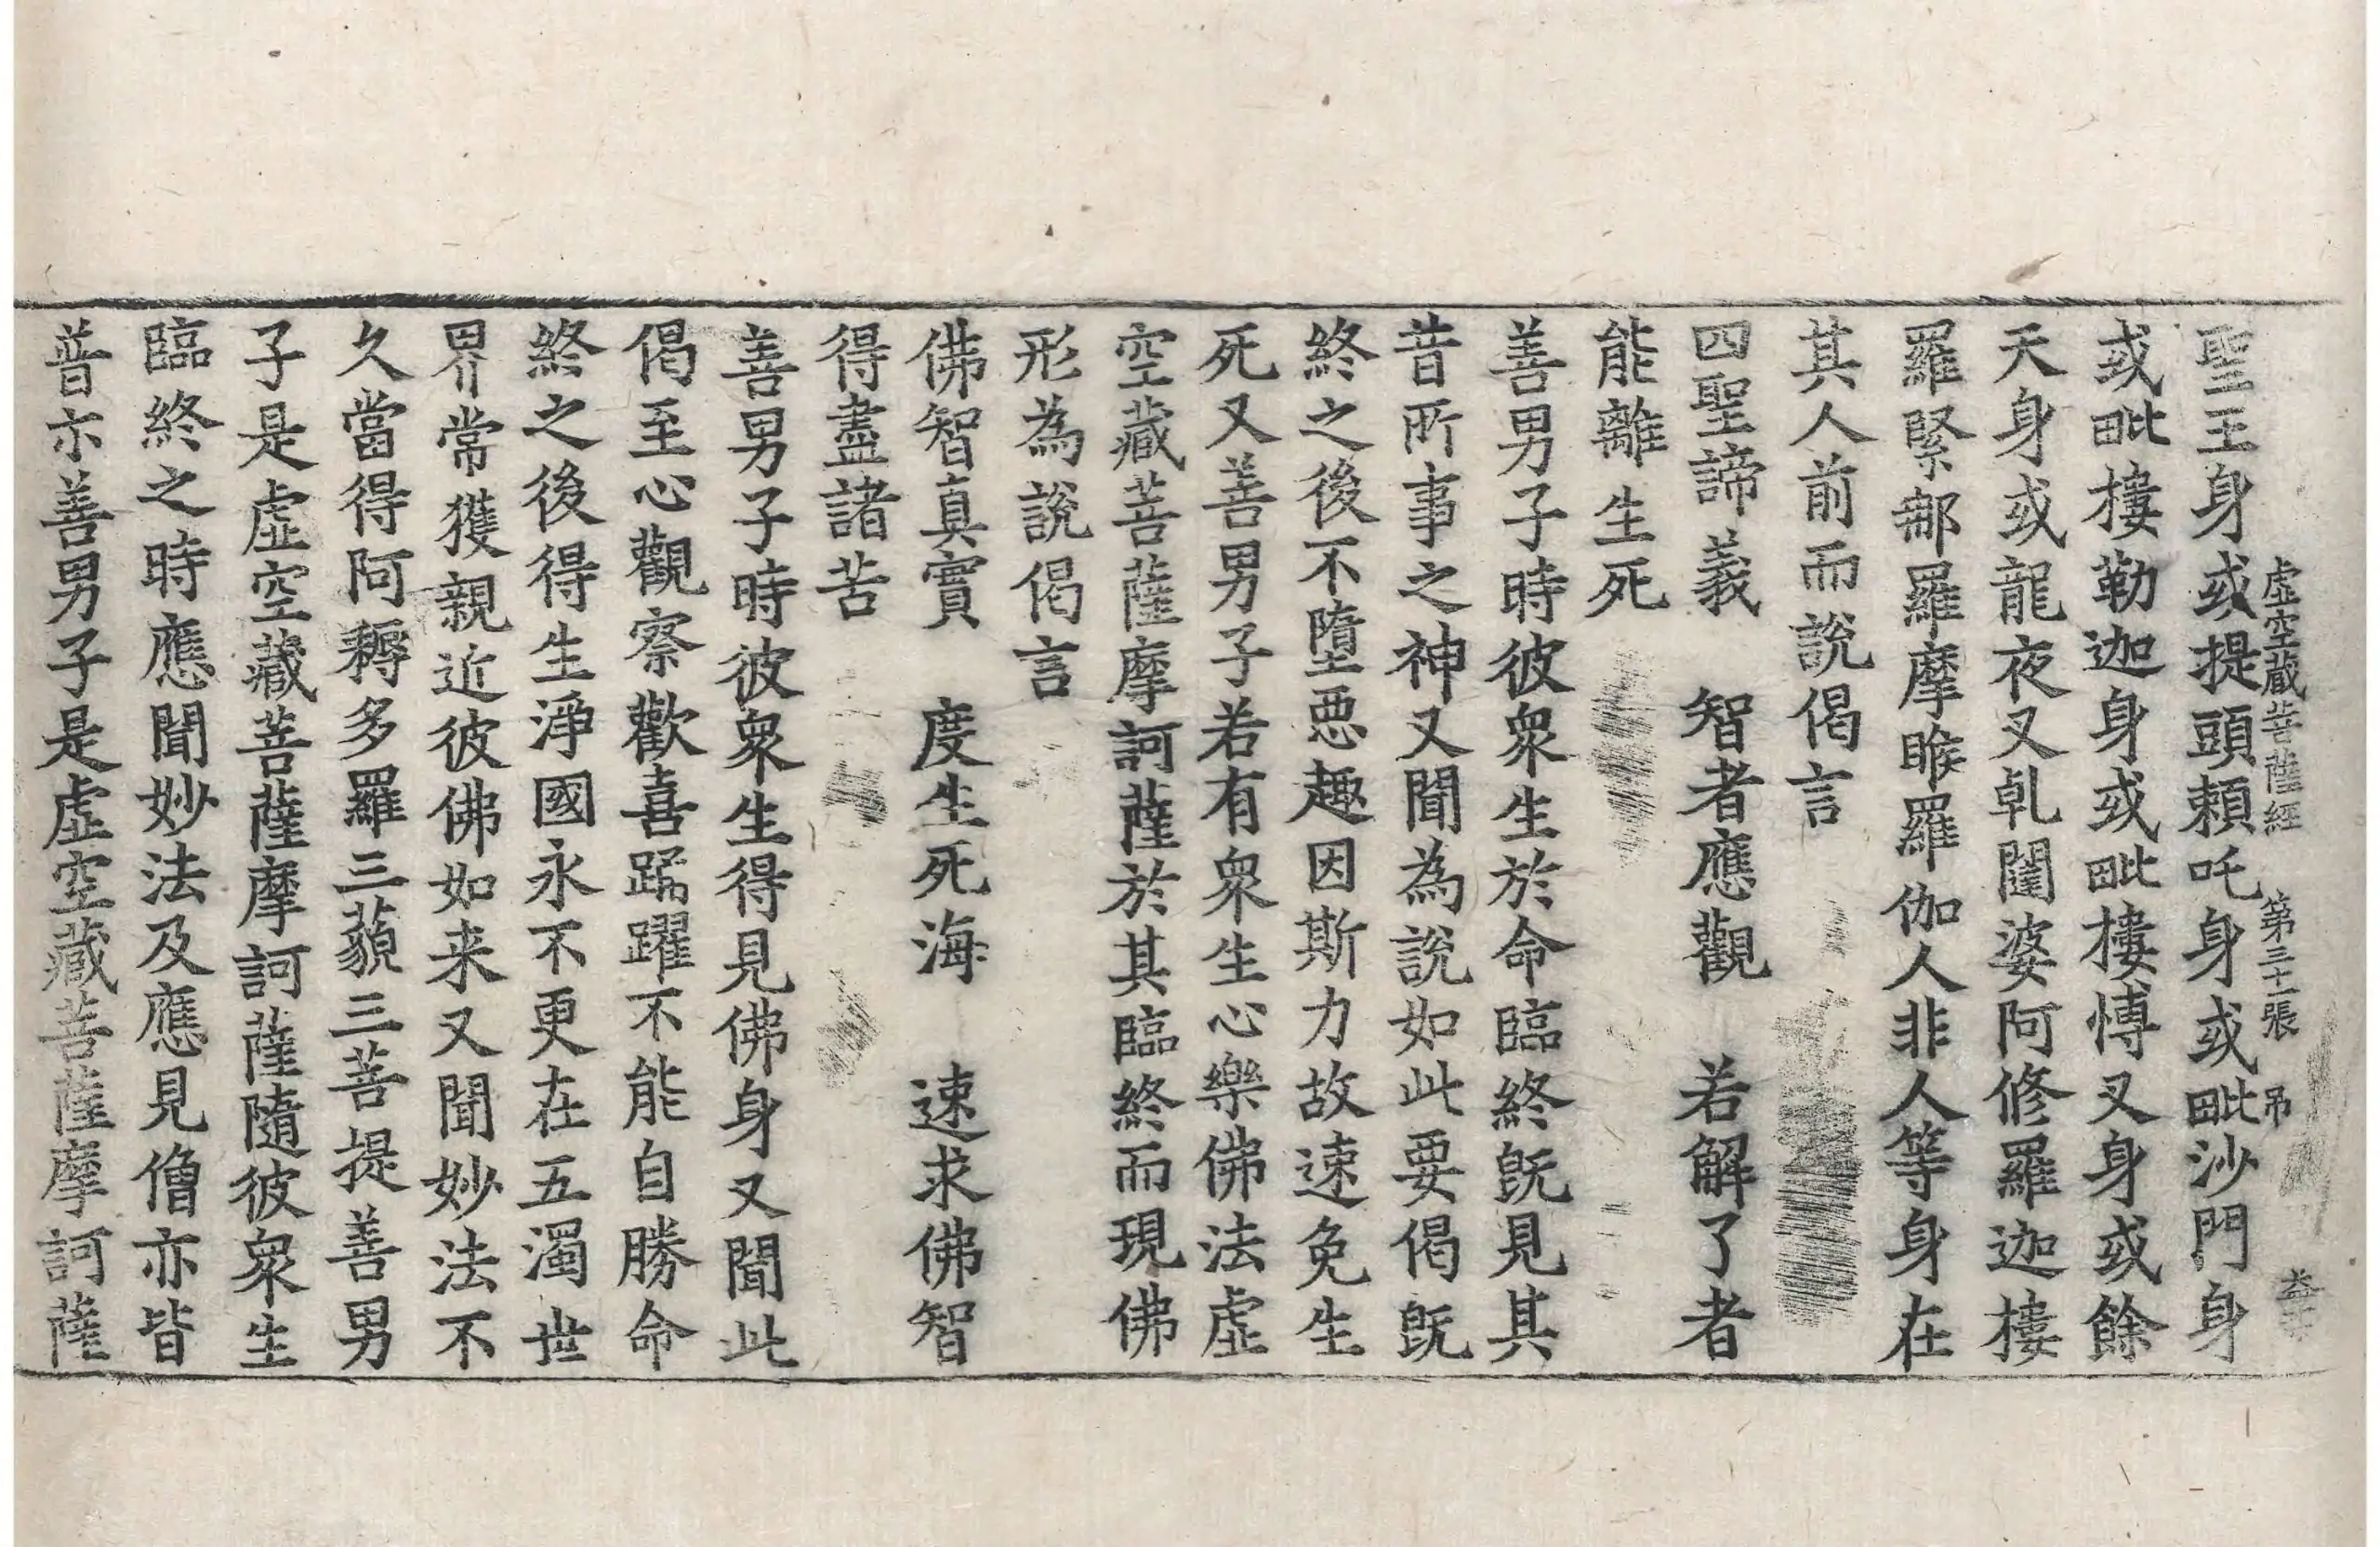 虛空藏菩薩經 第三十一張 吊
聖王身或提頭頼吒身或毗沙門身
或毗樓勒迦身或毗樓愽叉身或餘
天身或龍夜叉乹闥婆阿修羅迦樓
羅緊那羅摩睺羅伽人非人等身在
其人前而說偈言
四聖諦義 智者應觀 若解了者
能離生死
善男子時彼衆生於命臨終旣見其
昔所事之神又聞為說如此要偈旣
終之後不墮惡趣因斯力故速免生
死又善男子若有衆生心樂佛法虛
空藏菩薩摩訶薩於其臨終而現佛
形為說偈言
佛智真實 度生死海 速求佛智
得盡諸苦
善男子時彼衆生得見佛身又聞此
偈至心觀察歡喜踊躍不能自勝命
終之後得生淨國永不更在五濁世
界常獲親近彼佛如来又聞妙法不
久當得阿耨多羅三藐三菩提善男
子是虛空藏菩薩摩訶薩隨彼衆生
臨終之時應聞妙法及應見僧亦皆
普亦善男子是虛空藏菩薩摩訶薩